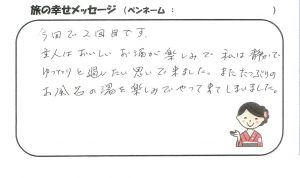 旅の幸せメッセージ (ペンネーム： )
今回で2回目です。
主人はおいしいお湯が楽しみで 私は静かで
ゆっくりと過したい思いで来ました。またたっぷりの
お風呂の湯を楽しみでやって来てしまいました。